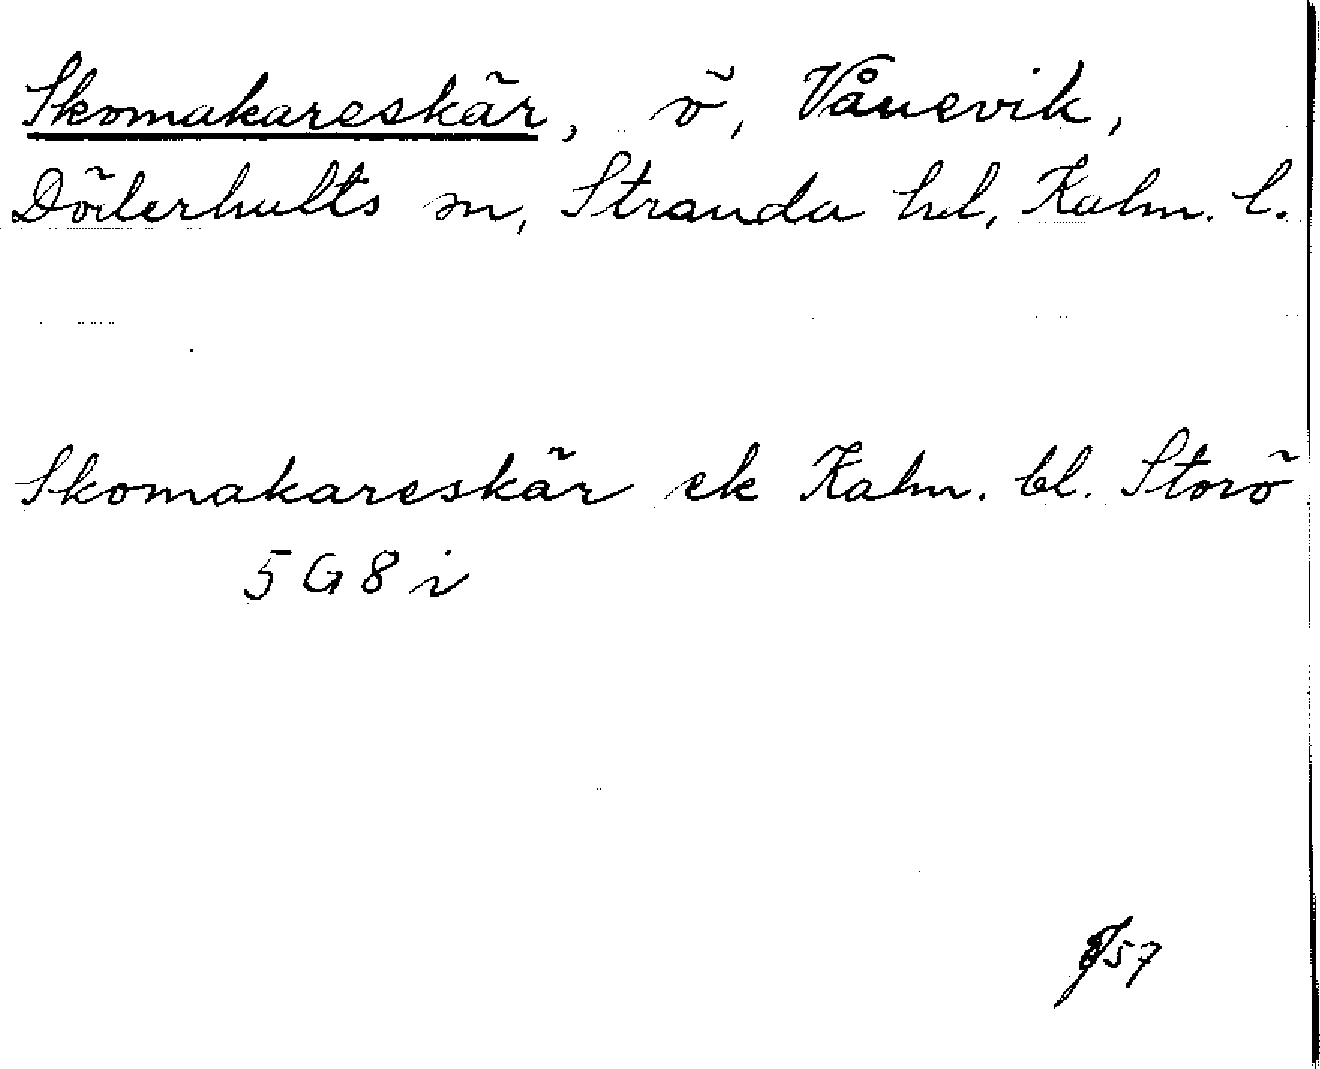 Skomakareskär, ö, Vånevik,
Döderhults sn, Stranda hd, Kalm. l.
Skomakareskär ek Kalm. bl. Storö
5 G 8 i
57